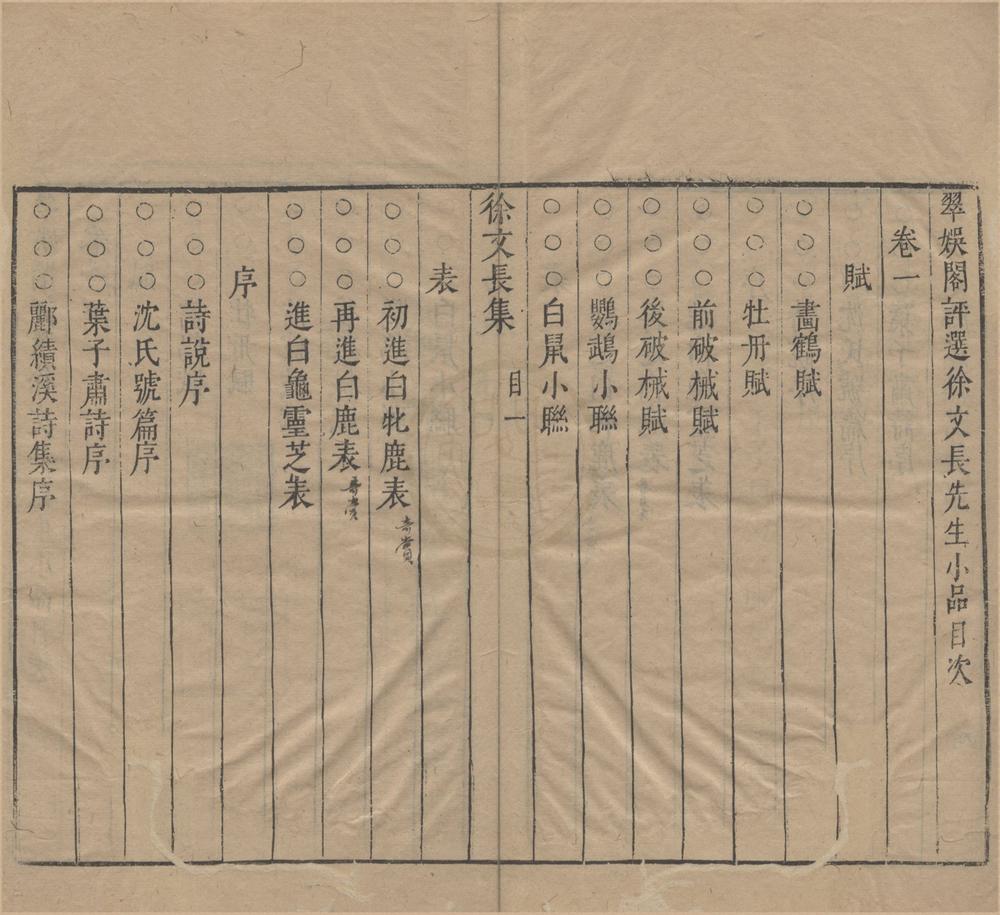 翠娛閣評選徐文長先生小品目次
卷一
賦
○○○畵鶴賦
○○○牡丹賦
○○○前破械賦
○○○後破械賦
○○○鸚鵡小聯
○○○白鼠小聯
徐文長集 目一
表
○○○初進白牝鹿表 奇賞
○○○再進白鹿表 奇賞
○○○進白龜靈芝表
序
○○○詩說序
○○○沈氏號篇序
○○○葉子肅詩序
○○○酈績溪詩集序